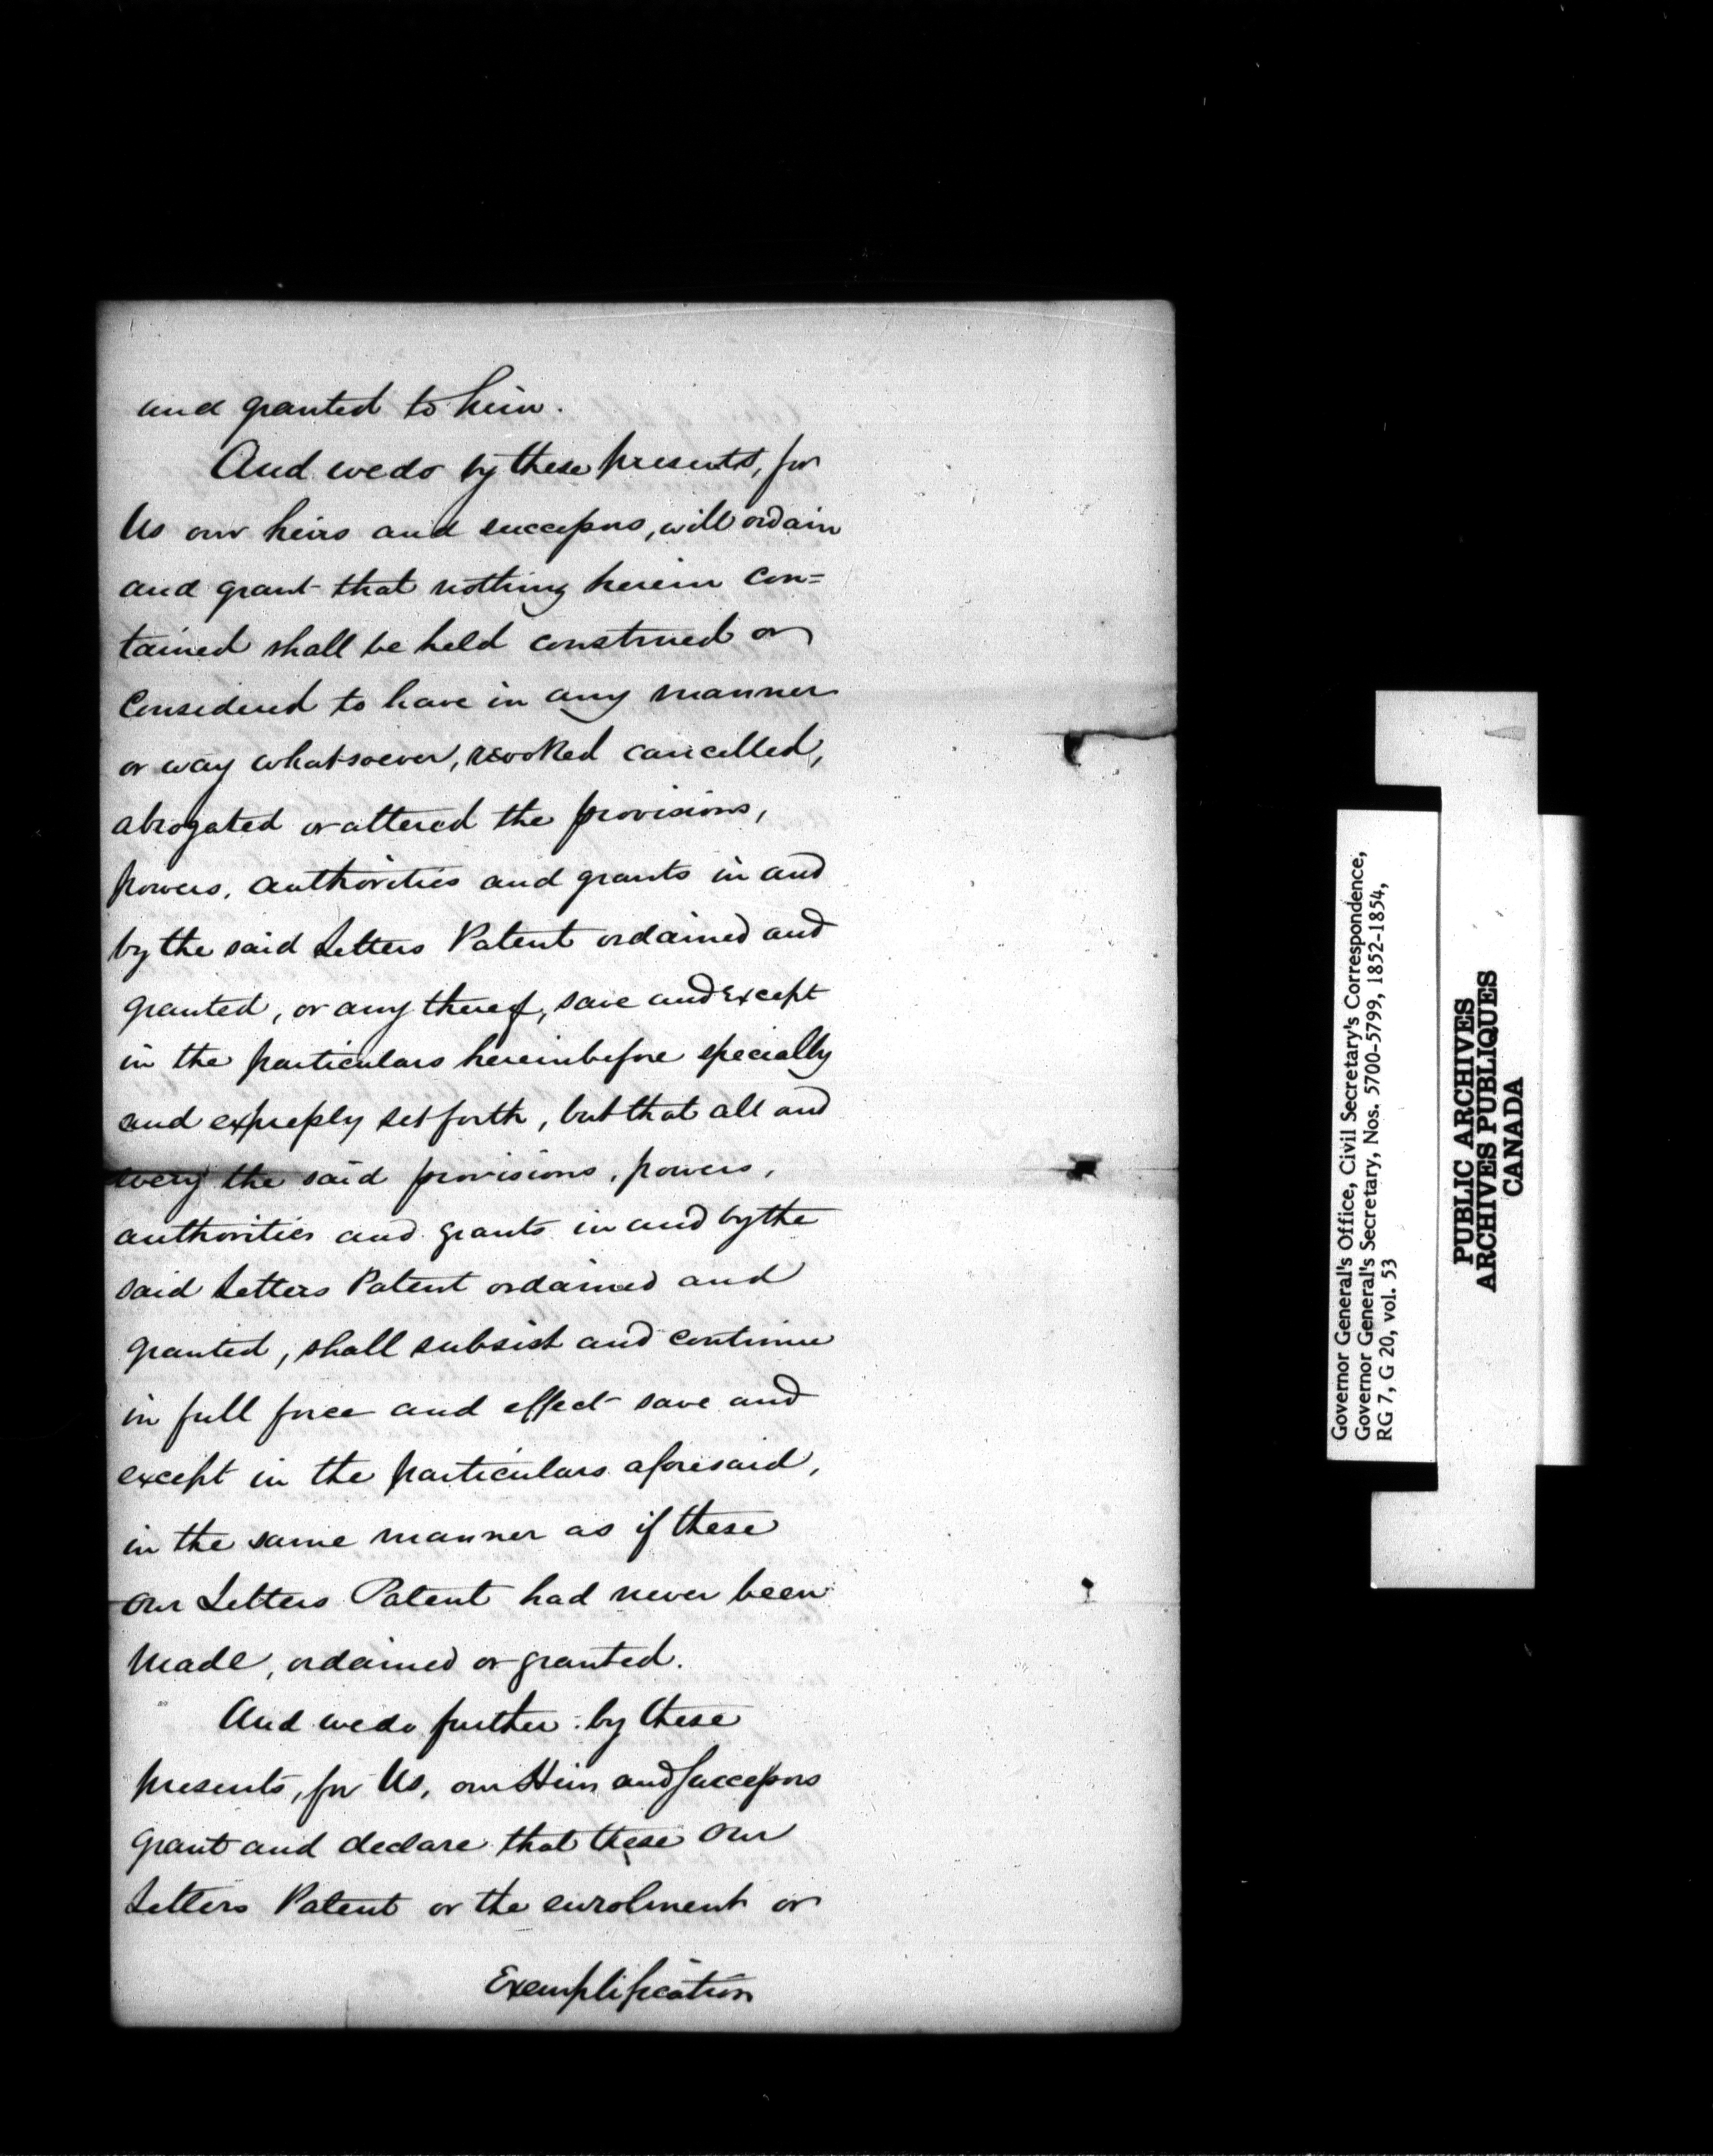 and granted to him.
And we do by these presents, for
Us our heirs and successors, will ordain
and grant that nothing herein con=
tained shall be held construed or
Considered to have in any manner
or way whatsoever, revoked cancelled,
abrogated or altered the provisions,
powers, authorities and grants in and
by the said Letters Patent ordained and
granted, or any thereof, save and except
in the particulars hereinbefore specially
and expressly set forth, but that all and
every the said provisions, powers,
authorities and grants in and by the
said Letters Patent ordained and
granted, shall subsist and continue
in full force and effect save and
except in the particulars aforesaid,
in the same manner as if these
our Letters Patent had never been
made, ordained or granted.
And we do further by these
presents, for Us, our Heirs and Successors
grant and declare that these our
Letters Patent or the enrolment or
Exemplification
Governor General's Office, Civil Secretary's Correspondence,
Governor General's Secretary, Nos. 5700-5799, 1852-1854,
RG 7, G 20, vol. 53
PUBLIC ARCHIVES
ARCHIVES PUBLIQUES
CANADA